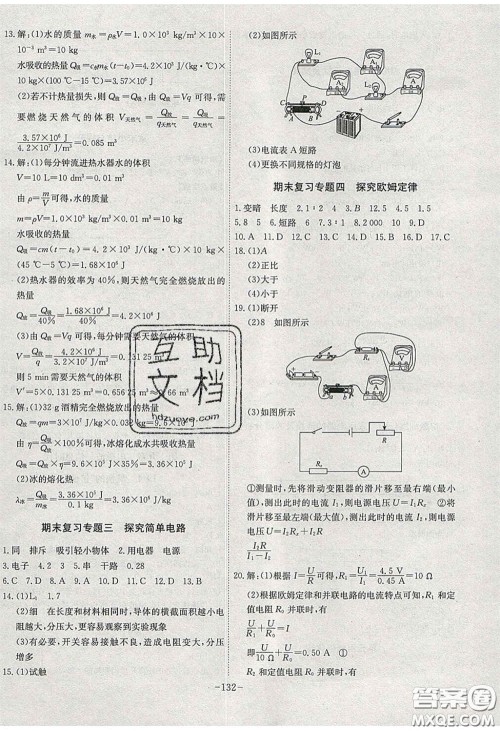 13.解:(1)水的质量 m水=ρ水V=1.0×10³ kg/m³×10×
10⁻³ m³=10 kg
水吸收的热量 Q吸=c水m水(t-t₀)=4.2×10³ J/(kg·℃)×
10 kg×(100 ℃-15 ℃)=3.57×10⁶ J
(2)若不计热量损失,则 Q吸=Q放,由 Q放=Vq 可得,需
要燃烧天然气的体积 V天然气=Q放/q天然气=Q吸/q天然气=
3.57×10⁶ J/4.2×10⁷ J/m³=0.085 m³
14.解:(1)每分钟流进热水器水的体积
V=10 L=10 dm³=0.01 m³
由 ρ=m/V 可得,水的质量
m=ρV=1.0×10³ kg/m³
水吸收的热量
Q吸=cm(t-t₀)=4.2×10³ J/(kg·℃)×10 kg×
(45 ℃-5 ℃)=1.68×10⁶ J
(2)热水器的效率为 40%,则天然气完全燃烧放出的
热量
Q放=Q吸/40%=1.68×10⁶ J/40%=4.2×10⁶ J
(3)由 Q放=Vq 可得,每分钟需要天然气的体积
V=Q放/q=4.2×10⁶ J/3.2×10⁷ J/m³=0.131 25 m³
则 5 min 需要天然气的体积
V′=5×0.131 25 m³=0.656 25 m³
15.解:(1)32 g 酒精完全燃烧放出的热量
Q放=qm=3×10⁷ J/kg×0.032 kg=9.6×10⁵ J
由 η=Q吸/Q放×100%可得,冰熔化成水共吸收热量
Q吸=Q放η=9.6×10⁵ J×35%=3.36×10⁵ J
(2)冰的熔化热
λ冰=Q吸/m冰=3.36×10⁵ J/1 kg=3.36×10⁵ J/kg
期末复习专题三 探究简单电路
1.同 排斥 吸引轻小物体 2.用电器 电源
3.电子 4.250 5.串 干路 0.28
6.C 7.D 8.A 9.D 10.D 11.A 12.B 13.B
14.(1)L₁ 1.7
(2)细 在长度和材料相同时,导体的横截面积越小电
阻越大,分压大,更容易观察到实验现象
(3)有必要,开关容易接触不良,造成电阻变大,分压
增多
15.(1)试触
(2)如图所示
(3)电流表 A 短路
(4)更换不同规格的灯泡
期末复习专题四 探究欧姆定律
1.变暗 长度 2.1:2 4 3.B 12 4.5 1.5
5.8 5 6.短路 7.1:3 8.2 000 9.D
10.A 11.D 12.C 13.D 14.D 15.D 16.C 17.D
18.(1)A
(2)正比
(3)大于
(4)小于
19.(1)断开
(2)8 如图所示
(3)如图所示
①测量时,先将滑动变阻器的滑片移至最右端(最小
值),测出此时的电流 I;再将滑动变阻器的滑片移至最
左端(最大值),测出此时的电流 I₁,代入公式可求 ②
I₁R/I-I₁
20.解:(1)根据 I=U/R可得,R₁=U/I₁=4.5 V/0.45 A=10 Ω
(2)根据欧姆定律和并联电路的电流特点可知,R₁和定
值电阻 R₀并联时,有
U/R₁+U/R₀=I
即U/10 Ω+U/R₀=0.50 A ①
R₂和定值电阻 R₀并联时,有
-132-
互助
文档
hdzuoye.com
作业圈
MXEQ.COM